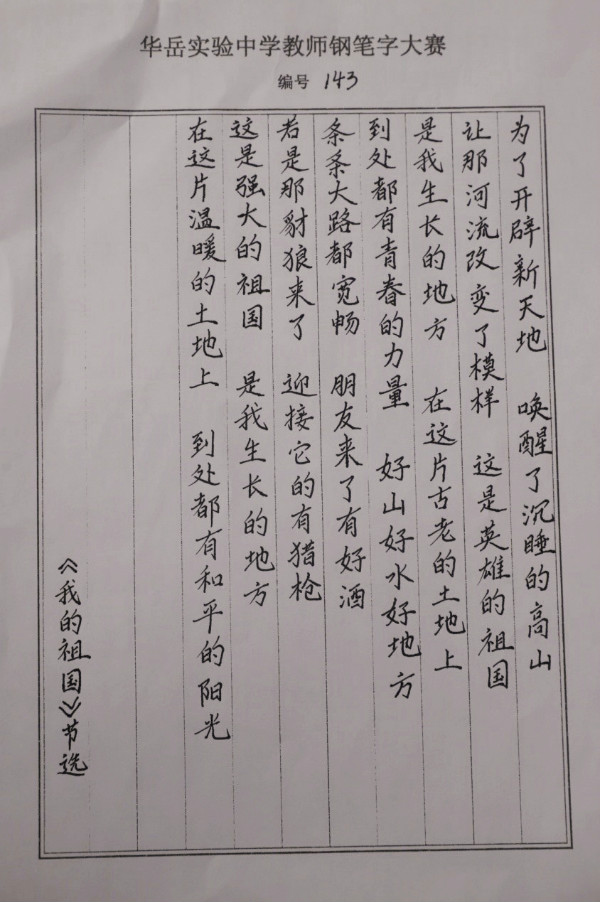 华岳实验中学教师钢笔字大赛
编号 143
为了开辟新天地 唤醒了沉睡的高山
让那河流改变了模样 这是英雄的祖国
是我生长的地方 在这片古老的土地上
到处都有青春的力量 好山好水好地方
条条大路都宽畅 朋友来了有好酒
若是那豺狼来了 迎接它的有猎枪
这是强大的祖国 是我生长的地方
在这片温暖的土地上 到处都有和平的阳光
《我的祖国》节选